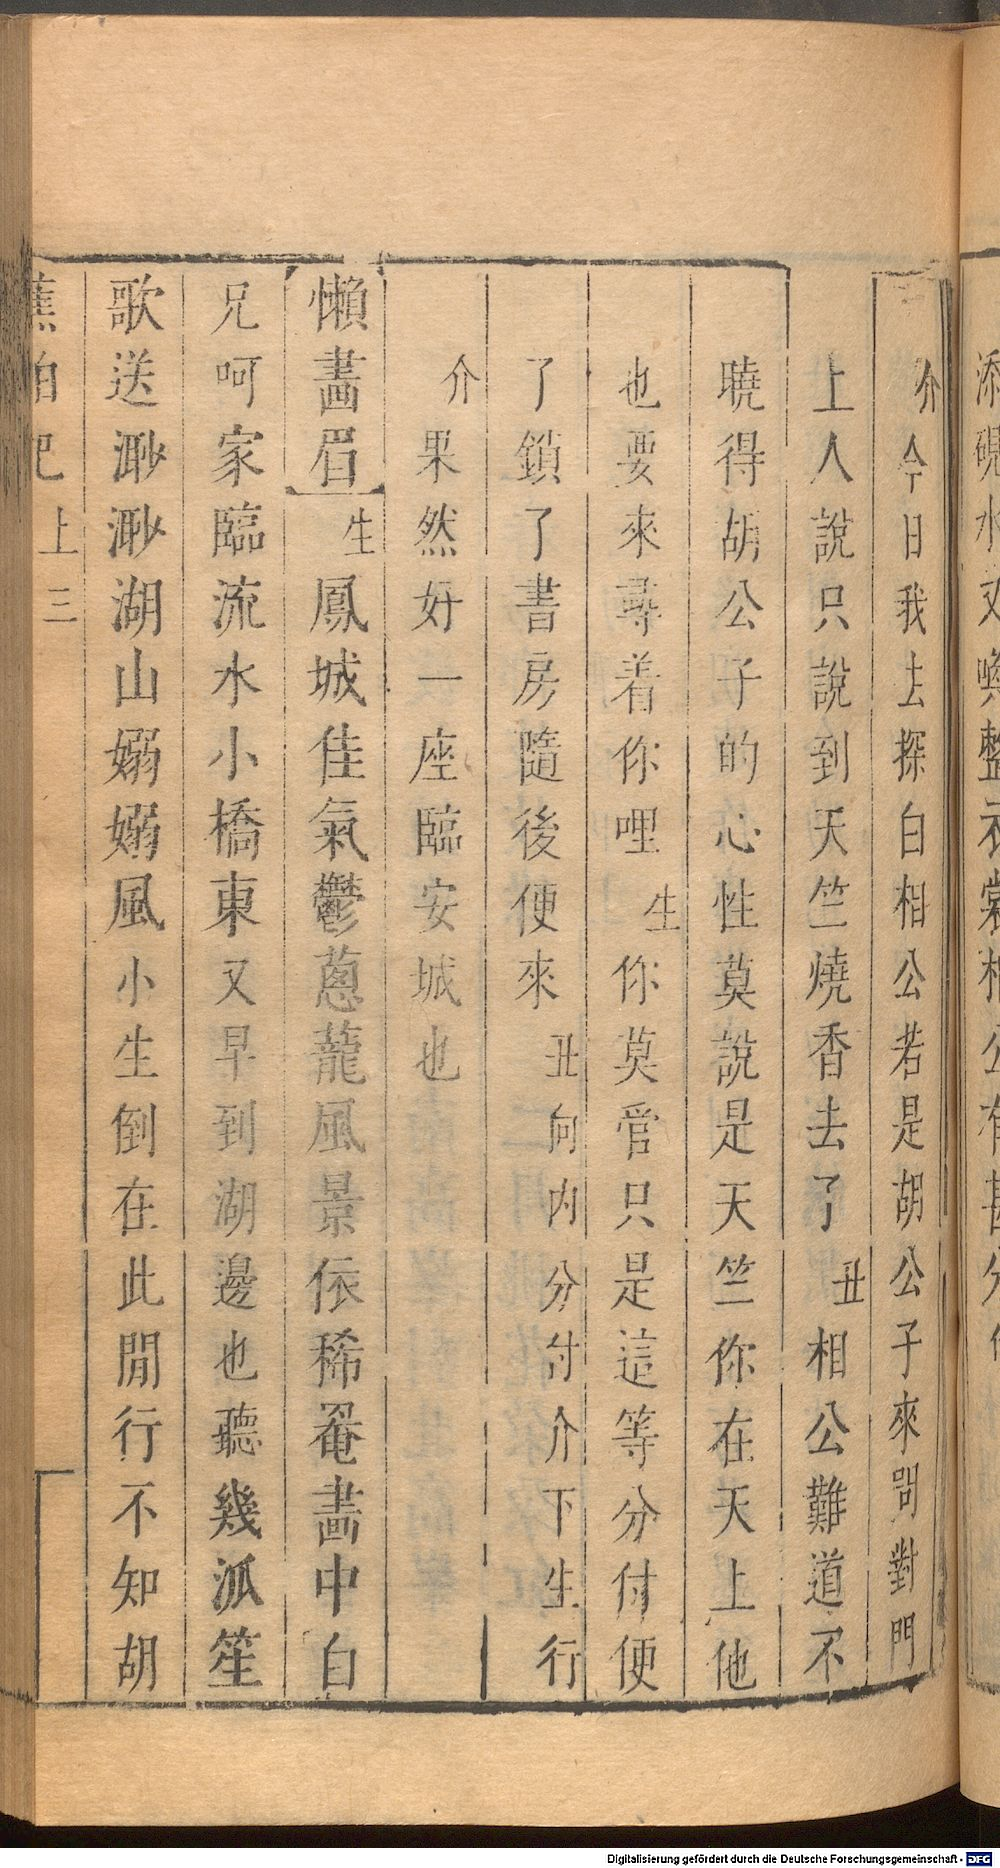 介今日我去探白相公若是胡公子來問對門
上人說只說到天竺燒香去了丑相公難道不
曉得胡公子的心性莫說是天竺你在天上他
也要來尋着你哩生你莫管只是這等分付便
了鎖了書房隨後便來丑向內分付介下生行
介果然好一座臨安城也
懶畫眉生鳳城佳氣鬱蔥蘢風景依稀罨畫中白
兄呵家臨流水小橋東又早到湖邊也聽幾派笙
歌送渺渺湖山嫋嫋風小生倒在此閒行不知胡
蕉帕記上三
添硯水又喚整衣裳相公有甚分付
Digitalisierung gefördert durch die Deutsche Forschungsgemeinschaft - DFG